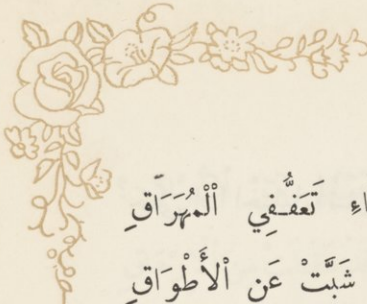 اءِ تَعَفُّفِي الْمُهَرَاقِ
شَبَّتْ عَنِ الْأَطْوَاقِ